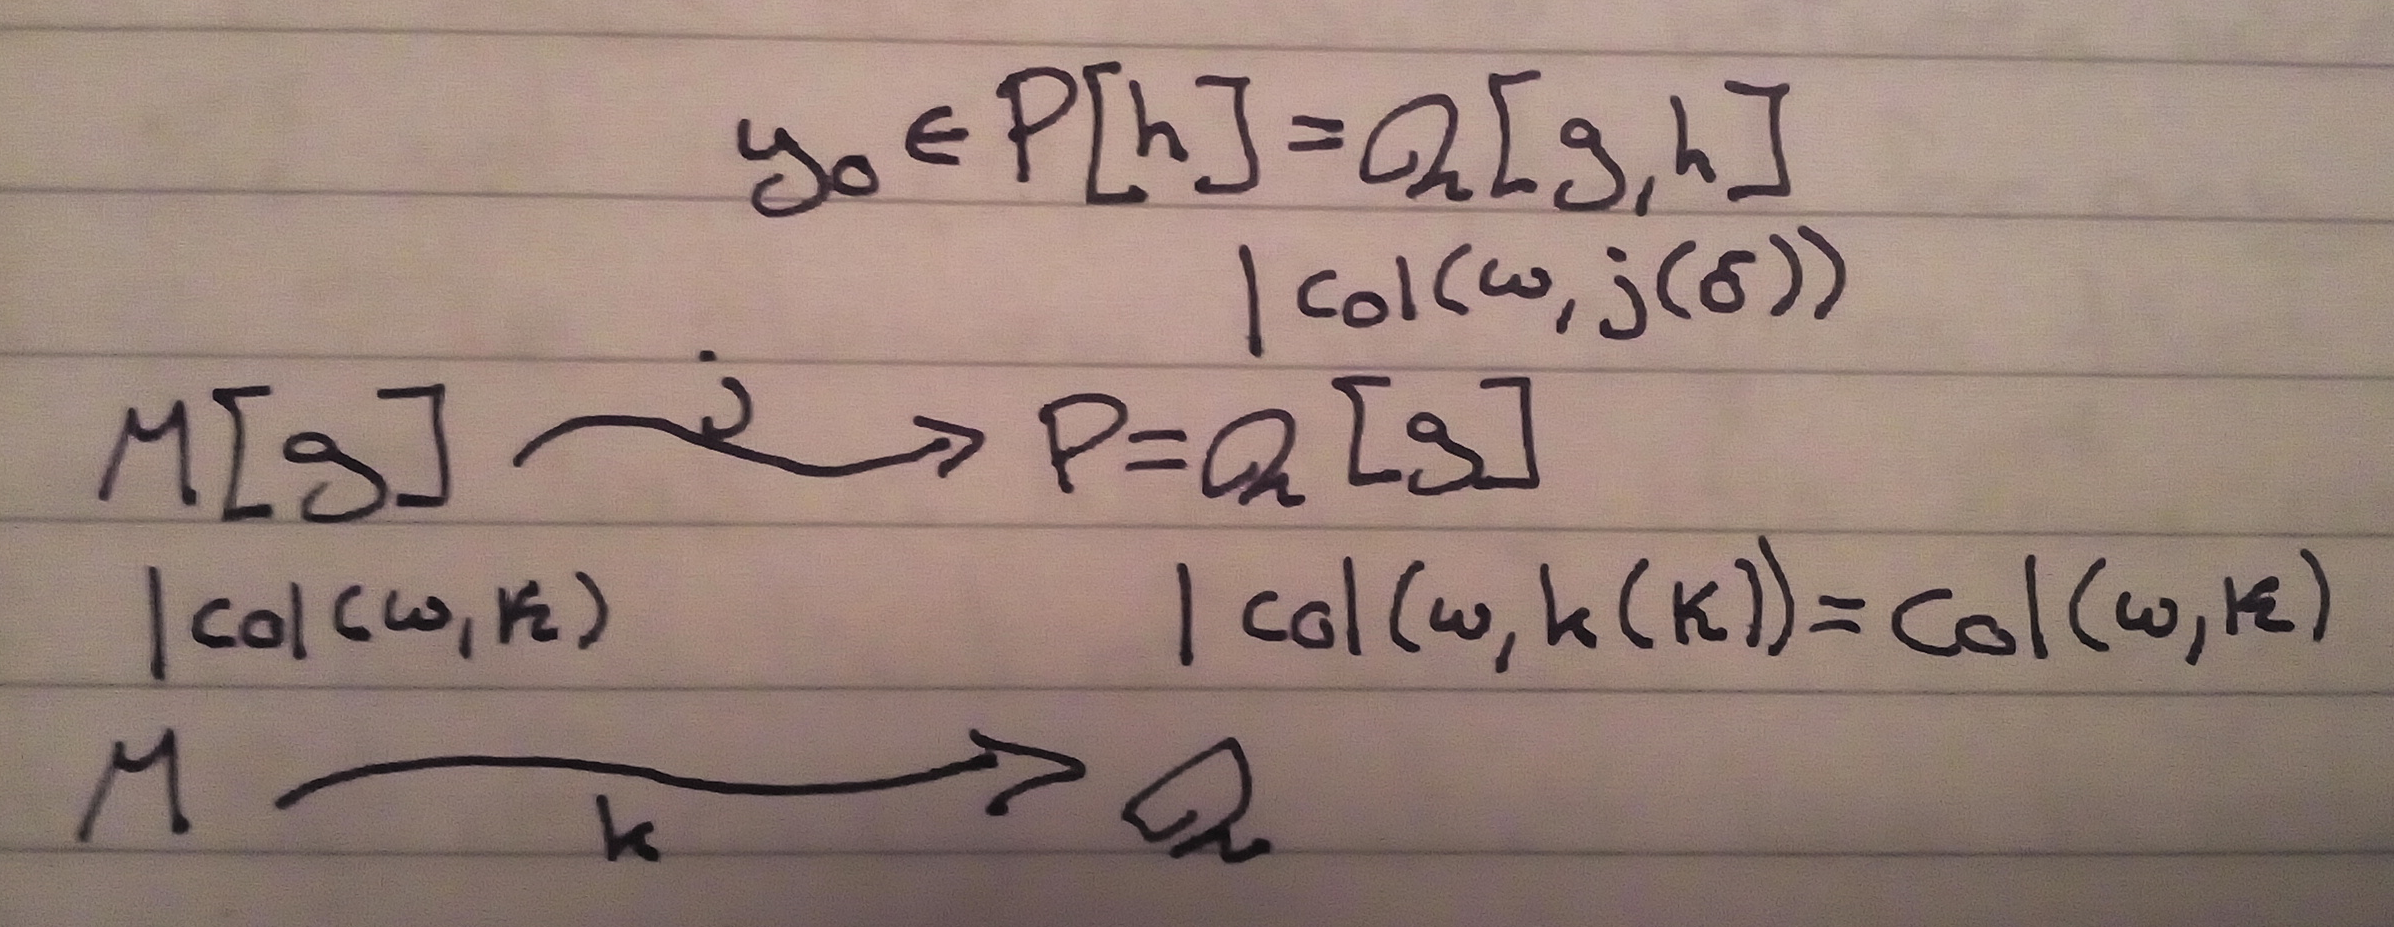 y₀ ∈ P[h] = Q[g,h]
| Col(ω, j(δ))
j
M[g] → P = Q[g]
| Col(ω, κ) | Col(ω, k(κ)) = Col(ω, κ)
M → Q
k